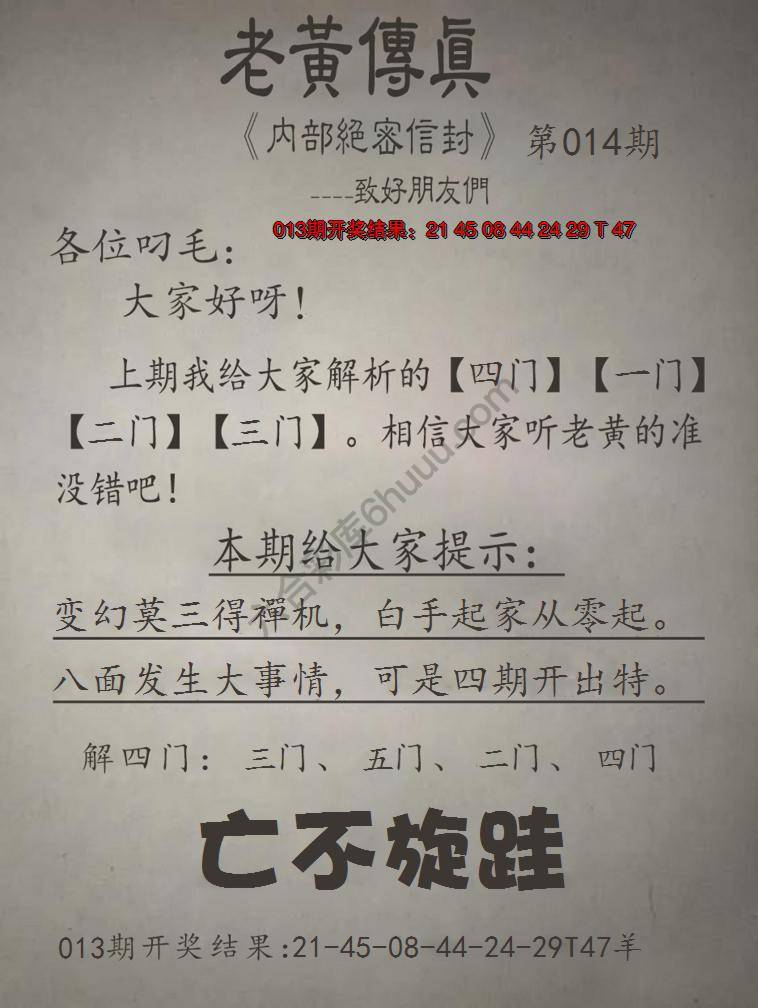 老黃傳眞
《内部絕密信封》 第014期
----致好朋友們
013期开奖结果：21 45 08 44 24 29 T 47
各位叼毛：
大家好呀！
上期我给大家解析的【四门】【一门】
【二门】【三门】。相信大家听老黄的准
没错吧！
六合彩库6huuu.com
本期给大家提示：
变幻莫三得禪机，白手起家从零起。
八面发生大事情，可是四期开出特。
解四门：三门、五门、二门、四门
亡不旋跬
013期开奖结果:21-45-08-44-24-29T47羊